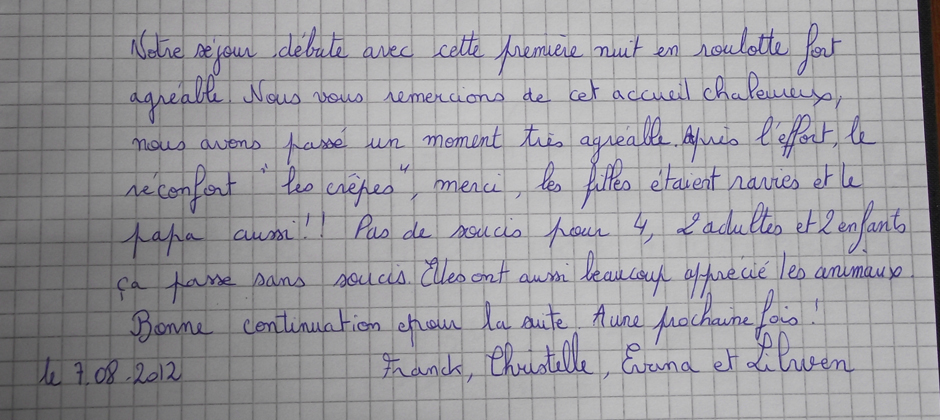 Notre séjour débute avec cette première nuit en roulotte fort
agréable. Nous vous remercions de cet accueil chaleureux,
nous avons passé un moment très agréable. Après l'effort, le
réconfort "les crêpes", merci, les filles étaient ravies et le
papa aussi!! Pas de soucis pour 4, 2 adultes et 2 enfants
ça passe sans soucis. Elles ont aussi beaucoup apprécié les animaux.
Bonne continuation pour la suite A une prochaine fois!
le 7.08.2012 Franck, Christelle, et